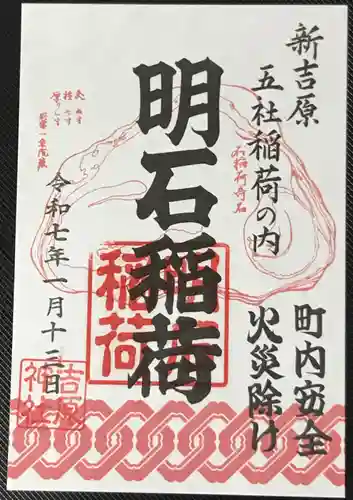 新吉原
五社稲荷の内
町内安全
火災除け
明石稲荷
令和七年一月十三日
稲荷
吉原
神社